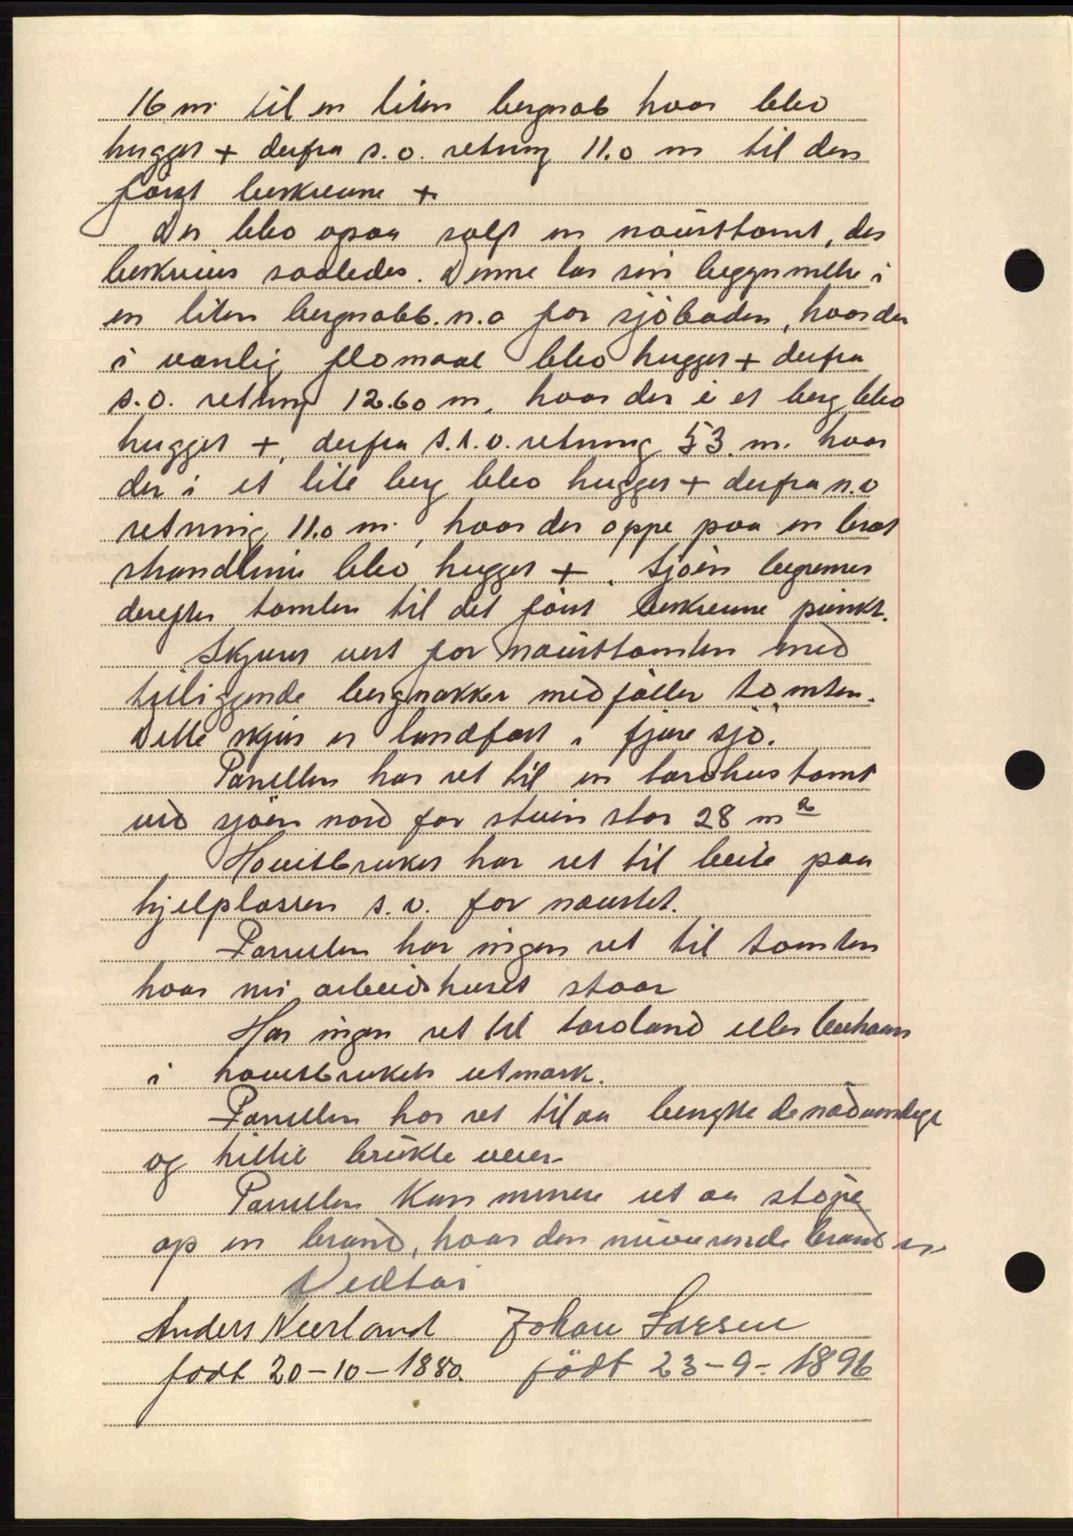 16 m til en liten bergnab hvor blev
hugget + derfra s.o. retning 11.0 m til den
först beskrevne +
Der blev opaa solgt en nousttomt, der
beskrives saaledes. Denne tar sin begynnelse i
en liten bergnabb. n.o for sjöboden, hvor der
i vanlig flomaal blev hugget + derfra
s.o. retning 12.60 m. hvor der i et berg blev
hugget +, derfra s.s.o. retning 53. m. hvor
der i et lite berg blev hugget + derfra n.o
retning 11.0 m., hvor der oppe paa en brat
strandlinie blev hugget +. Sjöen begrenser
derefter tomten til det först beskrevne punkt.
Skjeret vest for nousttomten med
tilliggende bergnakker medfölger tomten.
Dette skjer er landfast i fjære sjö.
Parsellen har ret til en torvhustomt
ved sjöen nord for støen stor 28 m²
Hovedbruket har ret til beite paa
hjelplassen s.v. for naustet.
Parsellen har ingen ret til tomten
hvor ni arbeidshuset staar
Har ingen ret til torvland eller beitehavn
i hovedbrukets utmark.
Parsellen har ret til aa benytte de nödvendige
og hittil brukte veier.
Parsellen kan minere ut aa støpe
op en brønd, hvor den nuværende brønd er.
Vedtas
Anders Neerland Johan Larsen
født 20-10-1880. født 23-9-1896